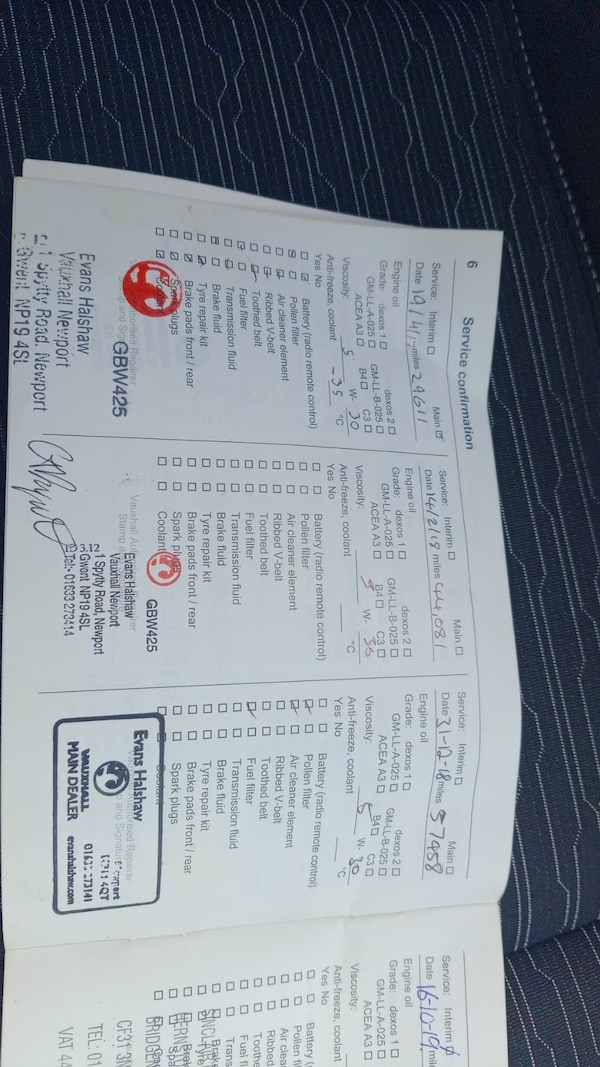 6
Service confirmation
Service: Interim Main
Date 19/4/17 miles 29611
Engine oil
Grade: dexos 1 dexos 2
GM-LL-A-025 GM-LL-B-025
ACEA A3 B4 C3
Viscosity: 5 W- 30
Anti-freeze, coolant -35 °C
Yes No
Battery (radio remote control)
Pollen filter
Air cleaner element
Ribbed V-belt
Toothed belt
Fuel filter
Transmission fluid
Brake fluid
Tyre repair kit
Brake pads front / rear
Spark plugs
Coolant
GBW425
Evans Halshaw
Vauxhall Newport
1 Spytty Road, Newport
Gwent NP19 4SL
Service: Interim Main
Date 14/2/18 miles 44,081
Engine oil
Grade: dexos 1 dexos 2
GM-LL-A-025 GM-LL-B-025
ACEA A3 B4 C3
Viscosity: 5 W- 30
Anti-freeze, coolant °C
Yes No
Battery (radio remote control)
Pollen filter
Air cleaner element
Ribbed V-belt
Toothed belt
Fuel filter
Transmission fluid
Brake fluid
Tyre repair kit
Brake pads front / rear
Spark plugs
Coolant
GBW425
Evans Halshaw
Vauxhall Newport
1 Spytty Road, Newport
Gwent NP19 4SL
Tel:- 01633 273414
Service: Interim Main
Date 31-12-18 miles 57458
Engine oil
Grade: dexos 1 dexos 2
GM-LL-A-025 GM-LL-B-025
ACEA A3 B4 C3
Viscosity: 5 W- 30
Anti-freeze, coolant °C
Yes No
Battery (radio remote control)
Pollen filter
Air cleaner element
Ribbed V-belt
Toothed belt
Fuel filter
Transmission fluid
Brake fluid
Tyre repair kit
Brake pads front / rear
Spark plugs
Coolant
Evans Halshaw
VAUXHALL
MAIN DEALER
evanshalshaw.com
Service: Interim
Date 16-10-19 mil
Engine oil
Grade: dexos 1
GM-LL-A-025
ACEA A3
Viscosity:
Anti-freeze, coolant
Yes No
Battery (radio remot
Pollen fil
Air clea
Ribbed
Toothe
Fuel fi
Trans
Brake
Tyre
Brak
Spa
BRIDGEN
CF31 3N
TEL: 01
VAT 44